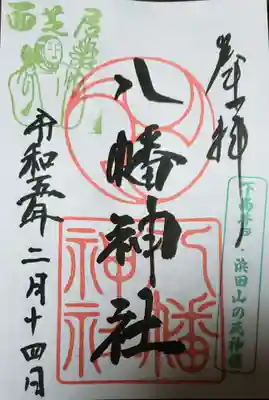 奉拝
八幡神社
令和五年二月十四日
八幡神社
下高井戸・浜田山の氏神様